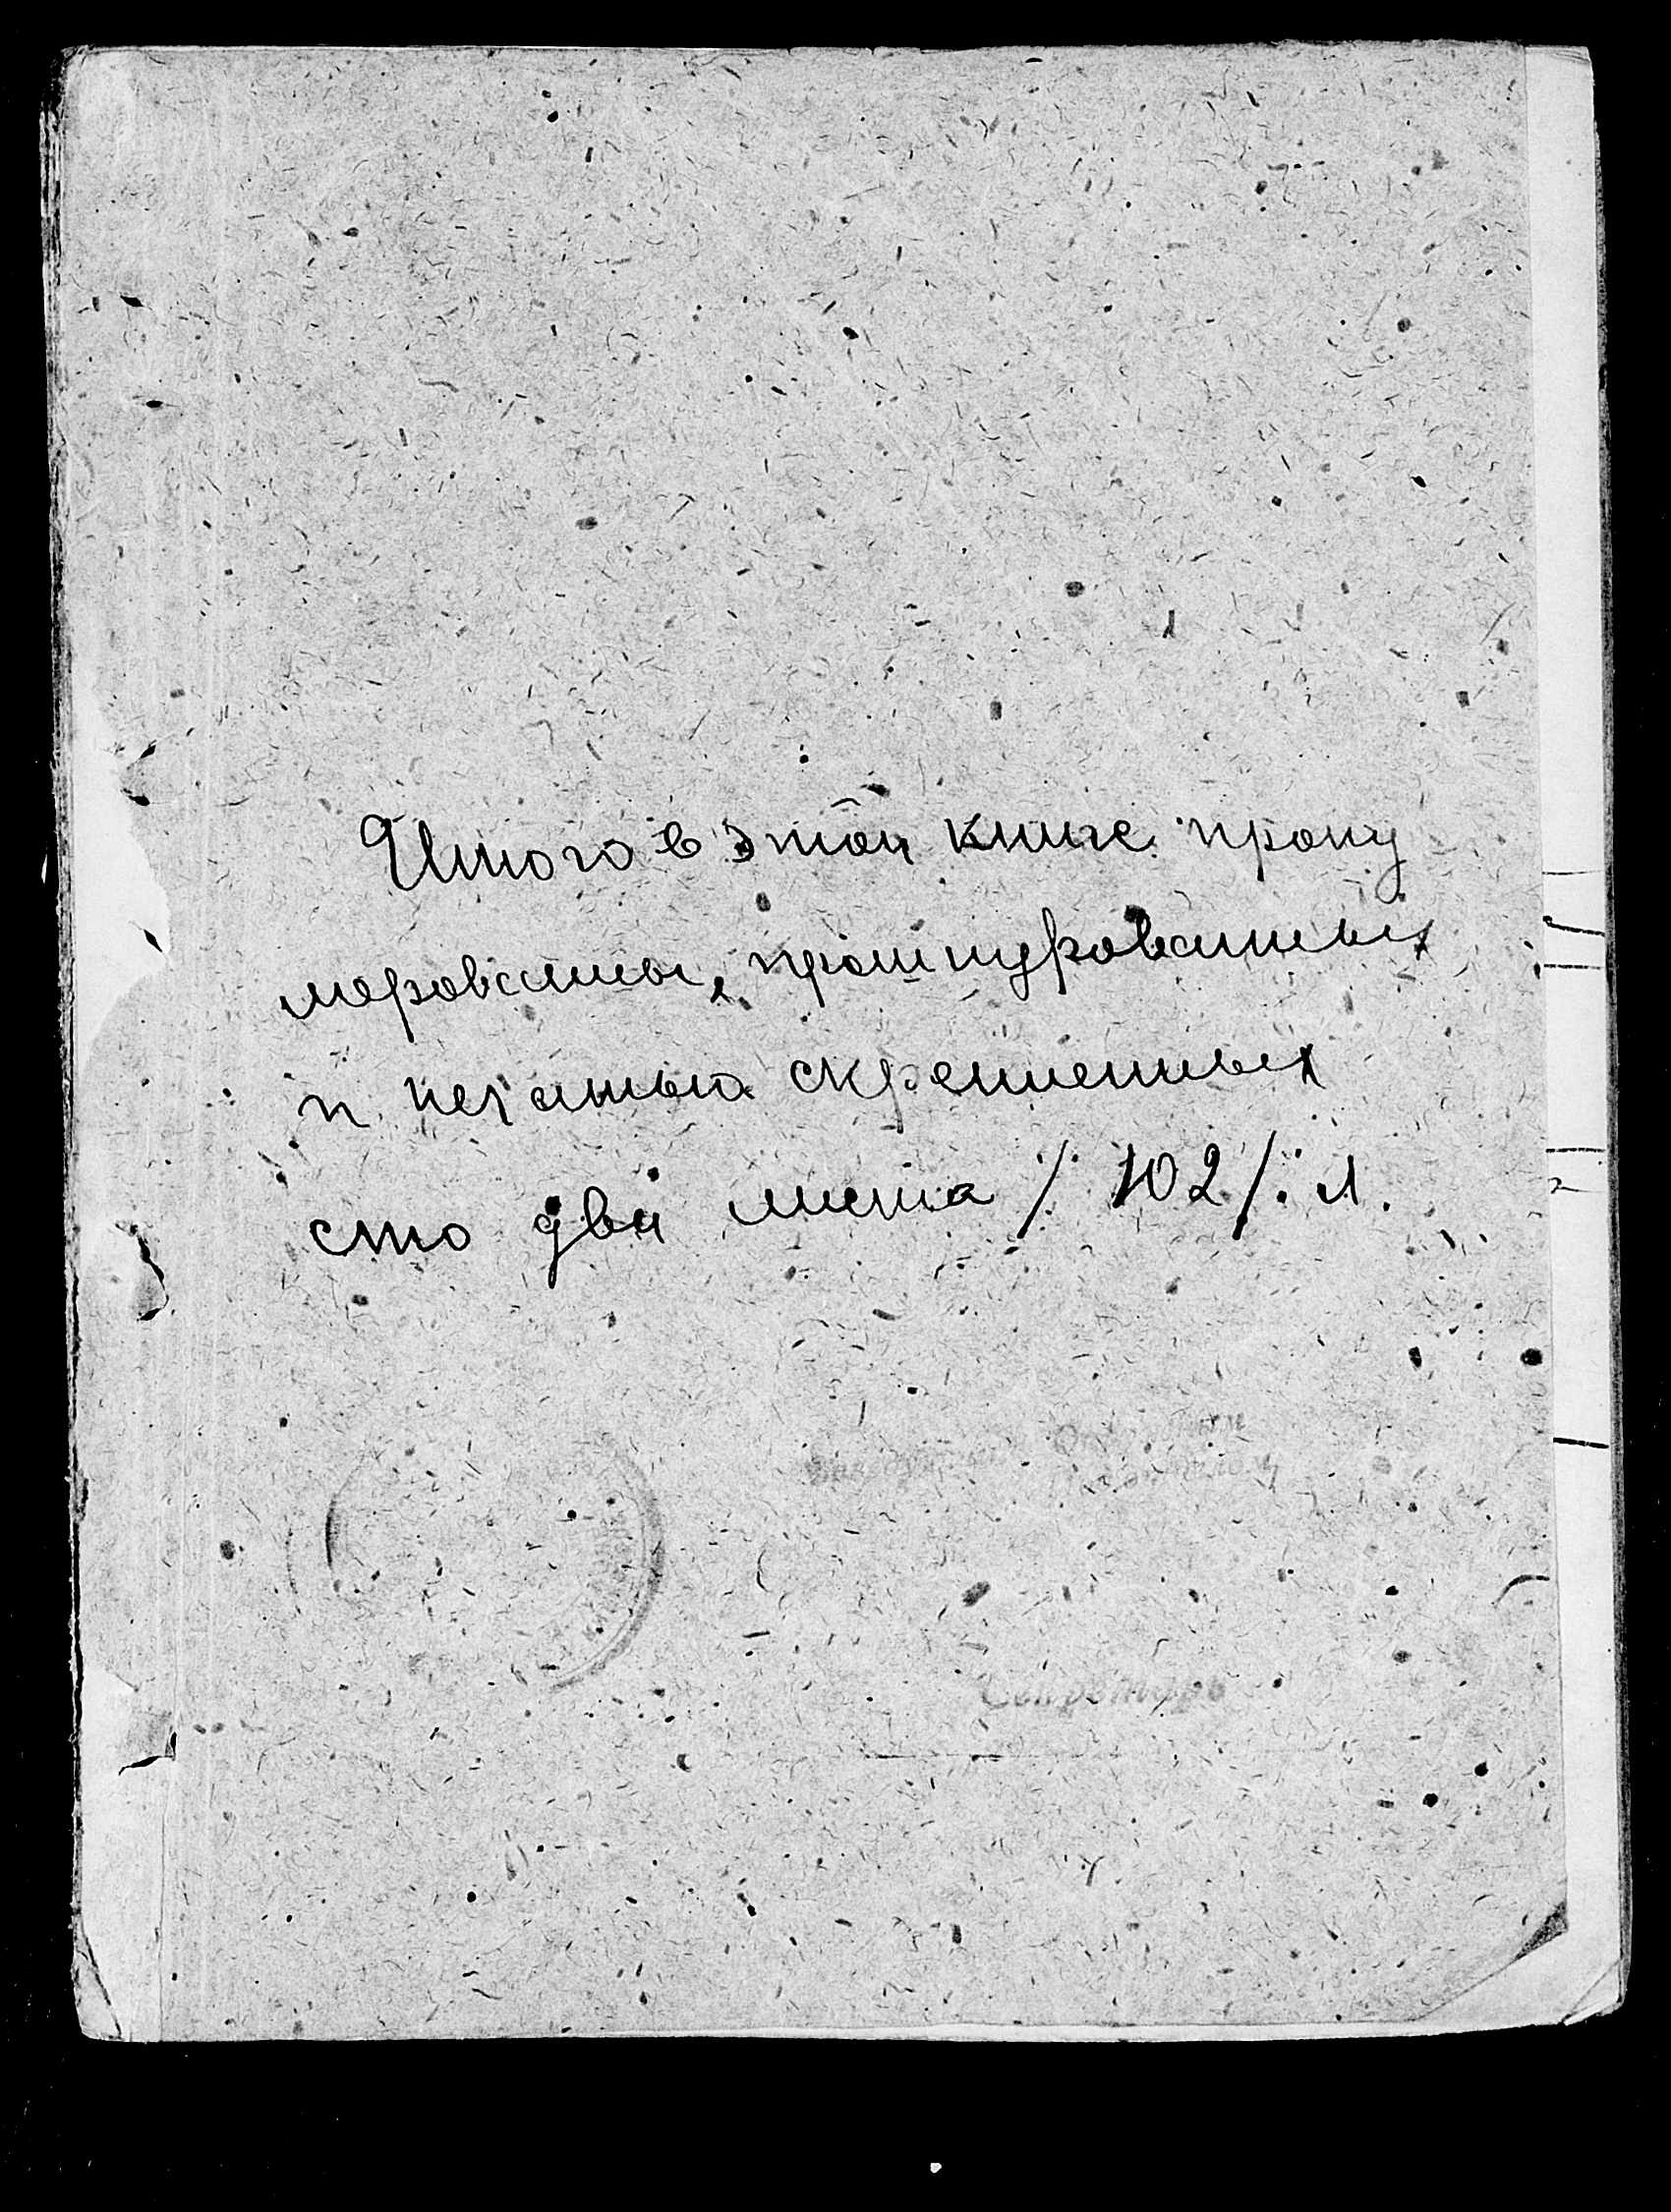 Итого в этой книге прону
мерованы, прошнурованных
и печатью скрепленных
сто два листа /: 102 /: л.
Секретарь